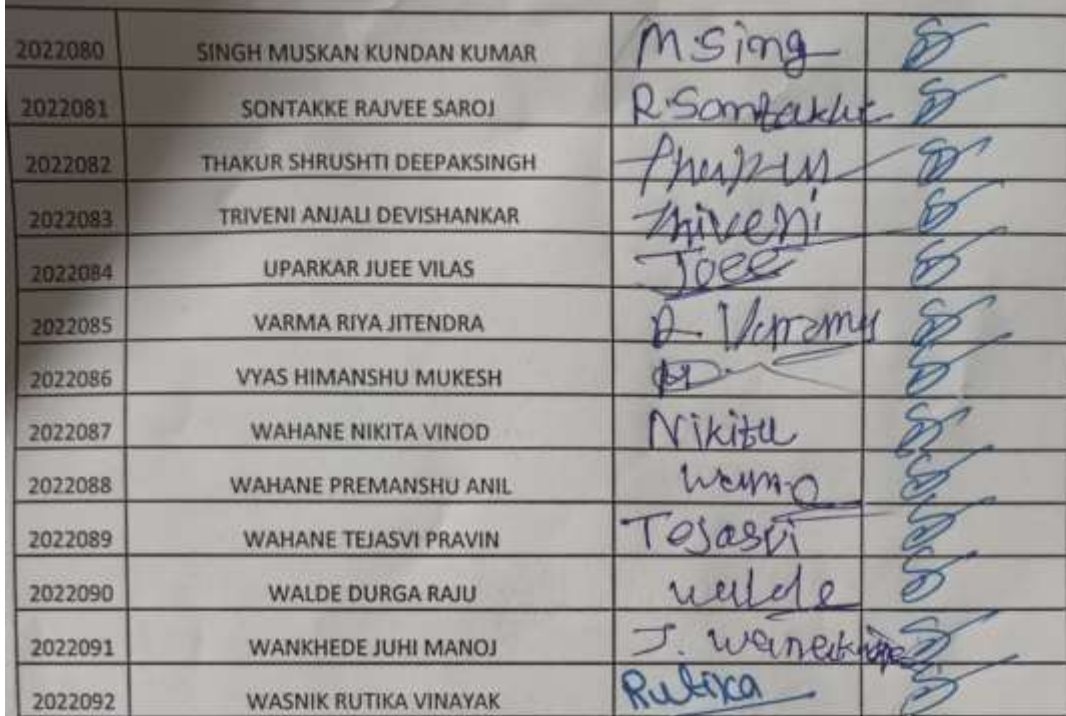 2022080 SINGH MUSKAN KUNDAN KUMAR M.Sing
2022081 SONTAKKE RAJVEE SAROJ R.Sontakke
2022082 THAKUR SHRUSHTI DEEPAKSINGH
2022083 TRIVENI ANJALI DEVISHANKAR Triveni
2022084 UPARKAR JUEE VILAS Joee
2022085 VARMA RIYA JITENDRA
2022086 VYAS HIMANSHU MUKESH
2022087 WAHANE NIKITA VINOD Nikita
2022088 WAHANE PREMANSHU ANIL
2022089 WAHANE TEJASVI PRAVIN Tejasvi
2022090 WALDE DURGA RAJU walde
2022091 WANKHEDE JUHI MANOJ J.
2022092 WASNIK RUTIKA VINAYAK Rutika